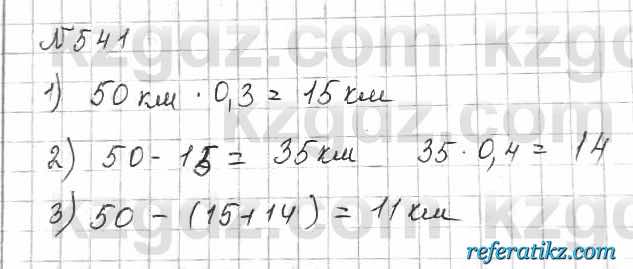 №541
1) 50 км · 0,3 = 15 км
2) 50 - 15 = 35 км 35 · 0,4 = 14
3) 50 - (15+14) = 11 км
kzgdz.com
referatikz.com